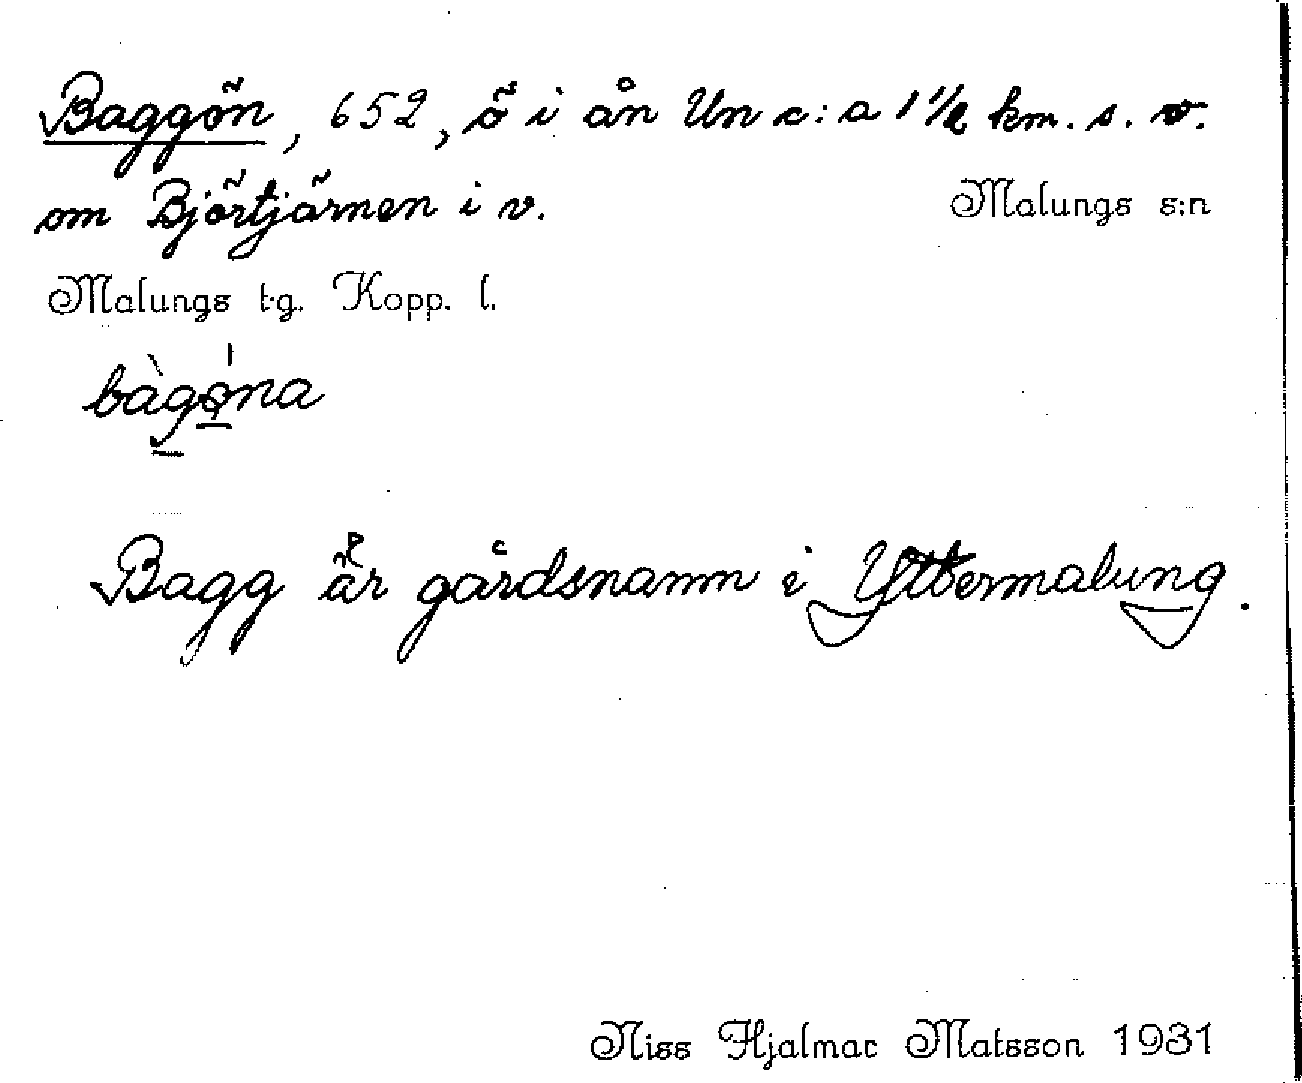 Baggön, 652, ö i ån Un c:a 1 1/2 km. s. v.
om Björtjärnen i v. Malungs s:n
Malungs t.g. Kopp. l.
bàgǿna
Bagg är gårdsnamn i Yttermalung.
Niss Hjalmar Matsson 1931